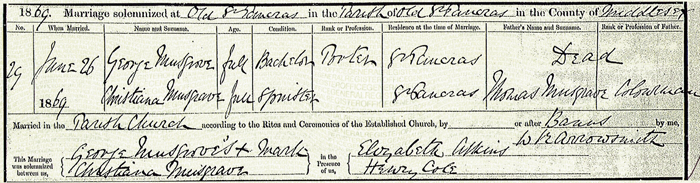 1869. Marriage solemnized at Old St Pancras in the Parish of Old St Pancras in the County of Middlesex
No. When Married. Name and Surname. Age. Condition. Rank or Profession. Residence at the time of Marriage. Father's Name and Surname. Rank or Profession of Father.
29 June 26 George Musgrove full Bachelor Porter St Pancras Dead
1869 Christiana Musgrave full Spinster St Pancras Thomas Musgrave Colourman
Married in the Parish Church according to the Rites and Ceremonies of the Established Church, by or after Banns by me,
W R Arrowsmith
This Marriage was solemnized between us, George Musgrove's + Mark In the Presence of us, Elizabeth Atkins
Christiana Musgrave Henry Cole